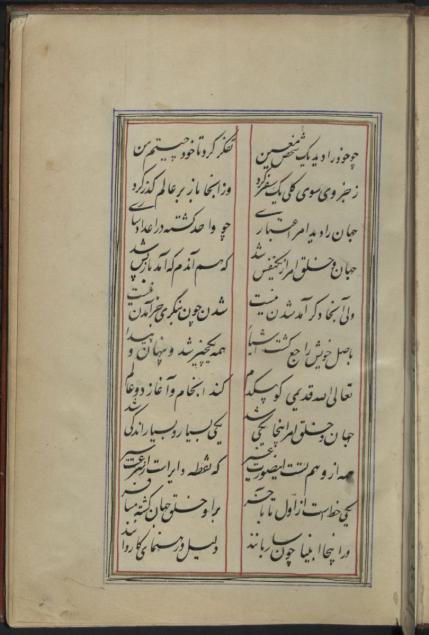 چو خود را دید یک شخص معین تفکر کرد تا خود چیستم من
ز جزوی سوی کلی یک سفر کرد وز انجا باز بر عالم گذر کرد
جهان را دید امر اعتباری چو واحد گشته در اعداد ساری
جهان و خلق امر از یکنفس شد که هم آندم که آمد باز پس شد
ولی آنجا دگر آمد شدن نیست شدن چون بنگری جز آمدن نیست
باصل خویش راجع گشت اشیا همه یکچیز شد و پنهان و پیدا
تعالی الله قدیمی کو بیکدم کند انجام و آغاز دو عالم
جهان و خلق امر اینجا یکی شد یکی بسیار و بسیار اندکی شد
همه از وهم تست اینصورت غیر که نقطه دایراست از سرعت سیر
یکی خط است از اول تا بآخر برو خلق جهان گشته مسافر
در اینجا انبیا چون ساربانند دلیل و رهنمای کاروانند